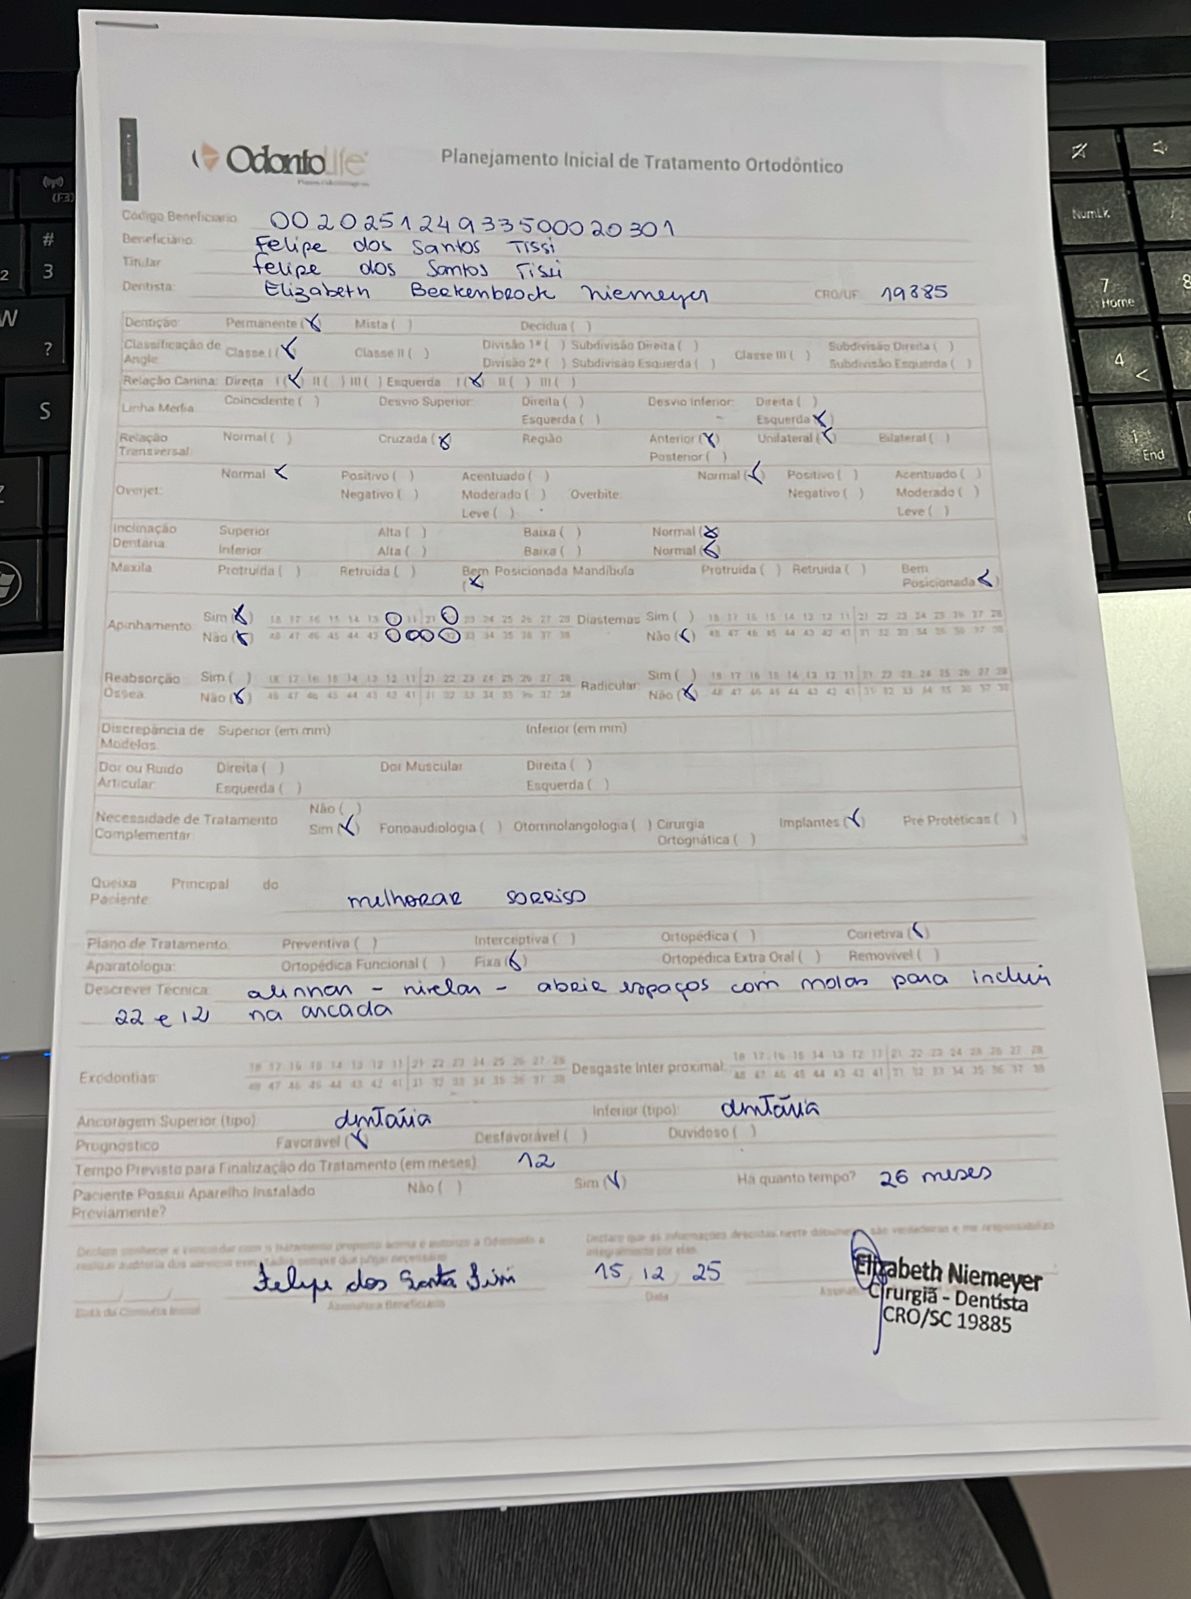 OdontoLife
Planejamento Inicial de Tratamento Ortodôntico
Código Beneficiário 00202512493350002 0301
Beneficiário: Felipe dos Santos Tissi
Titular felipe dos Santos Tissi
Dentista: Elizabeth Beckenbrock Niemeyer CRO/UF: 19885
Dentição: Permanente (x) Mista ( ) Decídua ( )
Classificação de Angle: Classe I (x) Classe II ( ) Divisão 1ª ( ) Subdivisão Direita ( ) Classe III ( ) Subdivisão Direita ( )
Divisão 2ª ( ) Subdivisão Esquerda ( ) Subdivisão Esquerda ( )
Relação Canina: Direita I (x) II ( ) III ( ) Esquerda I (x) II ( ) III ( )
Linha Média Coincidente ( ) Desvio Superior: Direita ( ) Desvio Inferior: Direita ( )
Esquerda ( ) Esquerda (x)
Relação Transversal: Normal ( ) Cruzada (x) Região Anterior (x) Unilateral (x) Bilateral ( )
Posterior ( )
Overjet: Normal (x) Positivo ( ) Acentuado ( ) Overbite: Normal (x) Positivo ( ) Acentuado ( )
Negativo ( ) Moderado ( ) Negativo ( ) Moderado ( )
Leve ( ) Leve ( )
Inclinação Dentária: Superior Alta ( ) Baixa ( ) Normal (x)
Inferior Alta ( ) Baixa ( ) Normal (x)
Maxila: Protruída ( ) Retruída ( ) Bem Posicionada (x) Mandíbula Protruída ( ) Retruída ( ) Bem Posicionada (x)
Apinhamento: Sim (x) 18 17 16 15 14 13 11 21 23 24 25 26 27 28 Diastemas Sim ( ) 18 17 16 15 14 13 12 11 21 22 23 24 25 26 27 28
Não (x) 48 47 46 45 44 43 33 34 35 36 37 38 Não (x) 48 47 46 45 44 43 42 41 31 32 33 34 35 36 37 38
Reabsorção Óssea: Sim ( ) 18 17 16 15 14 13 12 11 21 22 23 24 25 26 27 28 Radicular: Sim ( ) 18 17 16 15 14 13 12 11 21 22 23 24 25 26 27 28
Não (x) 48 47 46 45 44 43 42 41 31 32 33 34 35 36 37 38 Não (x) 48 47 46 45 44 43 42 41 31 32 33 34 35 36 37 38
Discrepância de Modelos: Superior (em mm) Inferior (em mm)
Dor ou Ruído Articular: Direita ( ) Dor Muscular Direita ( )
Esquerda ( ) Esquerda ( )
Necessidade de Tratamento Complementar: Não ( )
Sim (x) Fonoaudiologia ( ) Otorrinolangologia ( ) Cirurgia Ortognática ( ) Implantes (x) Pré Protéticas ( )
Queixa Principal do Paciente: melhorar sorriso
Plano de Tratamento: Preventiva ( ) Interceptiva ( ) Ortopédica ( ) Corretiva (x)
Aparatologia: Ortopédica Funcional ( ) Fixa (x) Ortopédica Extra Oral ( ) Removível ( )
Descrever Técnica: alinhar - nivelar - abrir espaços com molas para incluir
22 e 12 na arcada
Exodontias: 18 17 16 15 14 13 12 11 21 22 23 24 25 26 27 28 Desgaste Inter proximal: 18 17 16 15 14 13 12 11 21 22 23 24 25 26 27 28
48 47 46 45 44 43 42 41 31 32 33 34 35 36 37 38 48 47 46 45 44 43 42 41 31 32 33 34 35 36 37 38
Ancoragem Superior (tipo): dentária Inferior (tipo): dentária
Prognóstico Favorável (x) Desfavorável ( ) Duvidoso ( )
Tempo Previsto para Finalização do Tratamento (em meses): 12
Paciente Possui Aparelho Instalado Previamente? Não ( ) Sim (x) Há quanto tempo? 26 meses
Declaro conhecer e concordar com o tratamento proposto acima e autorizo a Odontolife a
realizar auditoria dos serviços executados sempre que julgar necessário
Declaro que as informações descritas neste documento são verdadeiras e me responsabilizo
integralmente por elas
Felipe dos Santos Tissi 15, 12, 25
Data da Consulta Inicial Assinatura Beneficiário Data
Elizabeth Niemeyer
Cirurgiã - Dentista
CRO/SC 19885
NumLk
7
Home
4
1
End
(F3)
#
3
2
W
?
S